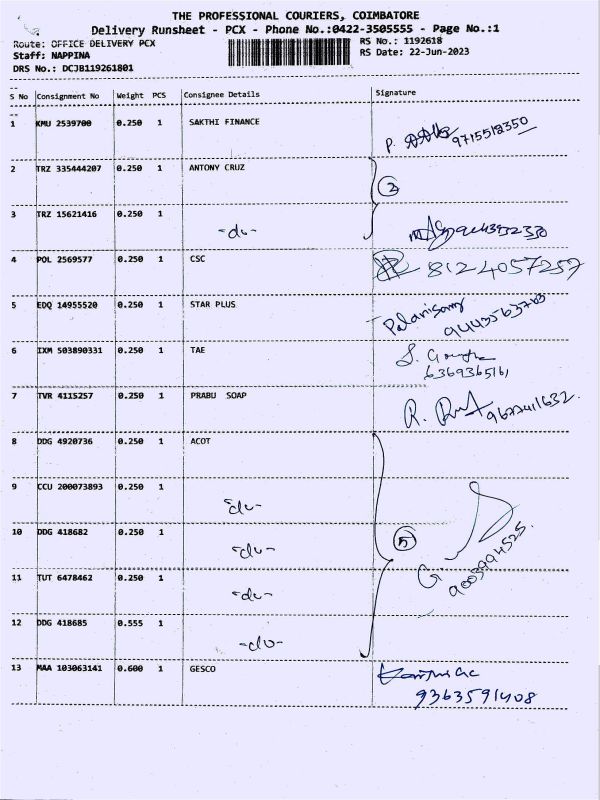 THE PROFESSIONAL COURIERS, COIMBATORE
Delivery Runsheet - PCX - Phone No.:0422-3505555 - Page No.:1
Route: OFFICE DELIVERY PCX RS No.: 1192618
Staff: NAPPINA RS Date: 22-Jun-2023
DRS No.: DCJB119261801
S No Consignment No Weight PCS Consignee Details Signature
1 KMU 2539700 0.250 1 SAKTHI FINANCE
P. 9715512350
2 TRZ 335444207 0.250 1 ANTONY CRUZ
2
3 TRZ 15621416 0.250 1
-do-
4 POL 2569577 0.250 1 CSC 8124057257
5 EDQ 14955520 0.250 1 STAR PLUS
Palanisamy
6 IXM 503890331 0.250 1 TAE
6369365161
7 TVR 4115257 0.250 1 PRABU SOAP
R. 9677411632.
8 DDG 4920736 0.250 1 ACOT
9 CCU 200073893 0.250 1
-do-
10 DDG 418682 0.250 1 5
-do-
11 TUT 6478462 0.250 1
-do-
12 DDG 418685 0.555 1
-do-
13 MAA 103063141 0.600 1 GESCO
9363591408